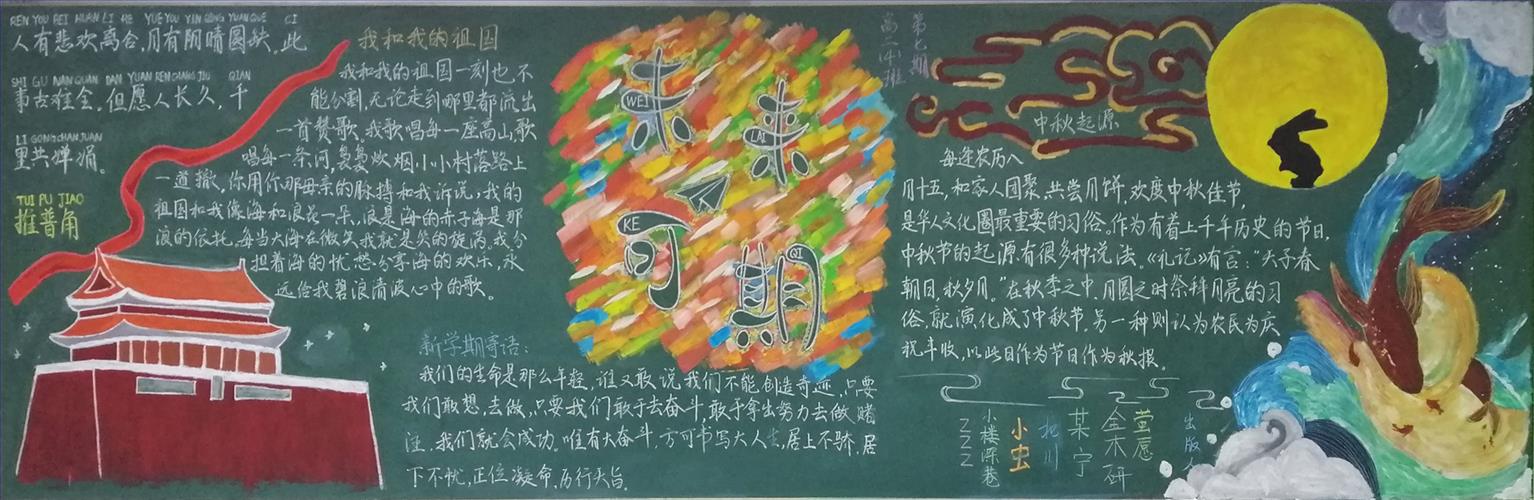 REN YOU BEI HUAN LI HE YUE YOU YIN QING YUAN QUE CI
人有悲欢离合,月有阴晴圆缺,此
SHI GU NAN QUAN DAN YUAN REN CHANG JIU QIAN
事古难全。但愿人长久,千
LI GONG CHAN JUAN
里共婵娟。
TUI PU JIAO
推普角
我和我的祖国
我和我的祖国一刻也不
能分割,无论走到哪里都流出
一首赞歌,我歌唱每一座高山歌
唱每一条河,袅袅炊烟,小小村落路上
一道撤,你用你那母亲的脉搏和我诉说,我的
祖国和我像海和浪花一朵,浪是海的赤子海是那
浪的依托,每当大海在微笑我就是笑的旋涡,我分
担着海的忧愁分享海的欢乐,永
远给我碧浪清波心中的歌。
新学期寄语:
我们的生命是那么年轻,谁又敢说我们不能创造奇迹,只要
我们敢想,去做,只要我们敢于去奋斗,敢于拿出努力去做赌
注,我们就会成功。唯有大奋斗,方可书写大人生,居上不骄,居
下不忧,正位凝命,历行夫旨。
未来
WEI
LAI
可期
KE
QI
第七期
高二
班
中秋起源
每逢农历八
月十五,和家人团聚,共尝月饼,欢度中秋佳节,
是华人文化圈最重要的习俗。作为有着上千年历史的节日,
中秋节的起源有很多种说法。《礼记》有言:“天子春
朝日,秋夕月。”在秋季之中,月圆之时祭拜月亮的习
俗,就演化成了中秋节,另一种则认为农民为庆
祝丰收,以此日作为节日作为秋报。
出版人
萤愿
金木研
某宁
小虫
小楼深巷
ZZZ